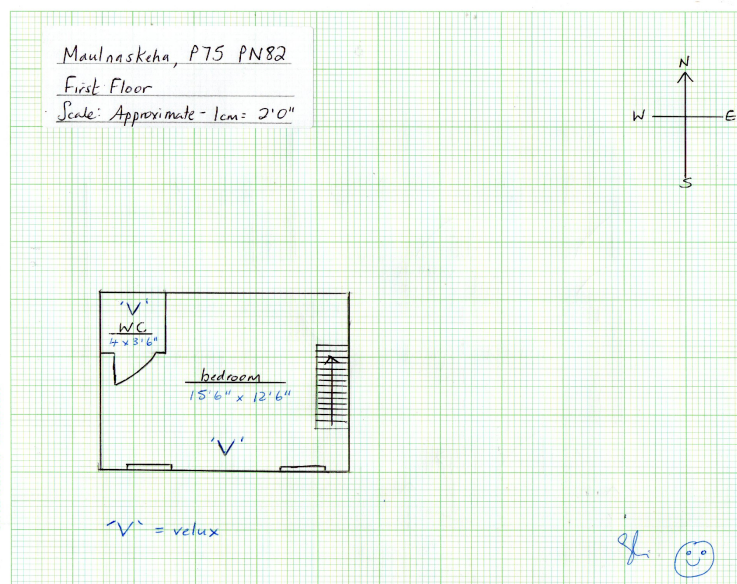 Maulnaskeha, P75 PN82
First Floor
Scale: Approximate - 1cm = 2'0"
N
W E
S
'V'
WC
4 x 3'6"
bedroom
15'6" x 12'6"
'V'
'V' = velux